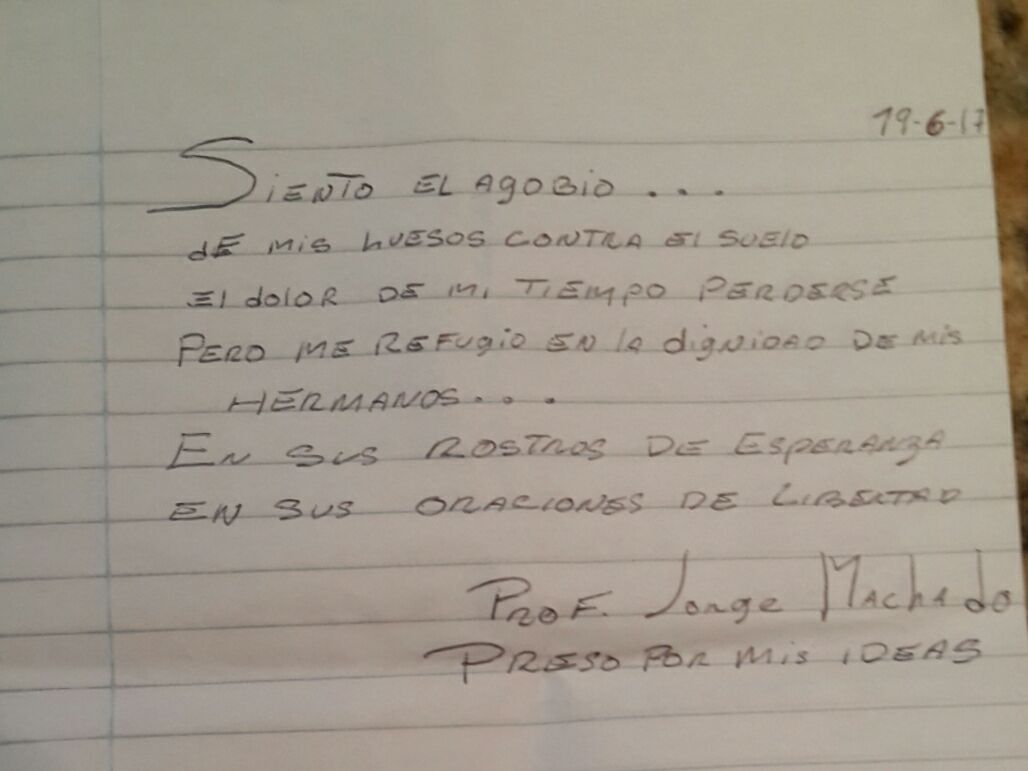 19-6-17
Siento el agobio . . .
de mis huesos contra el suelo
El dolor de mi tiempo perderse
Pero me refugio en la dignidad de mis
hermanos. . .
En sus rostros de esperanza
En sus oraciones de libertad
Prof. Jorge Machado
Preso por mis ideas